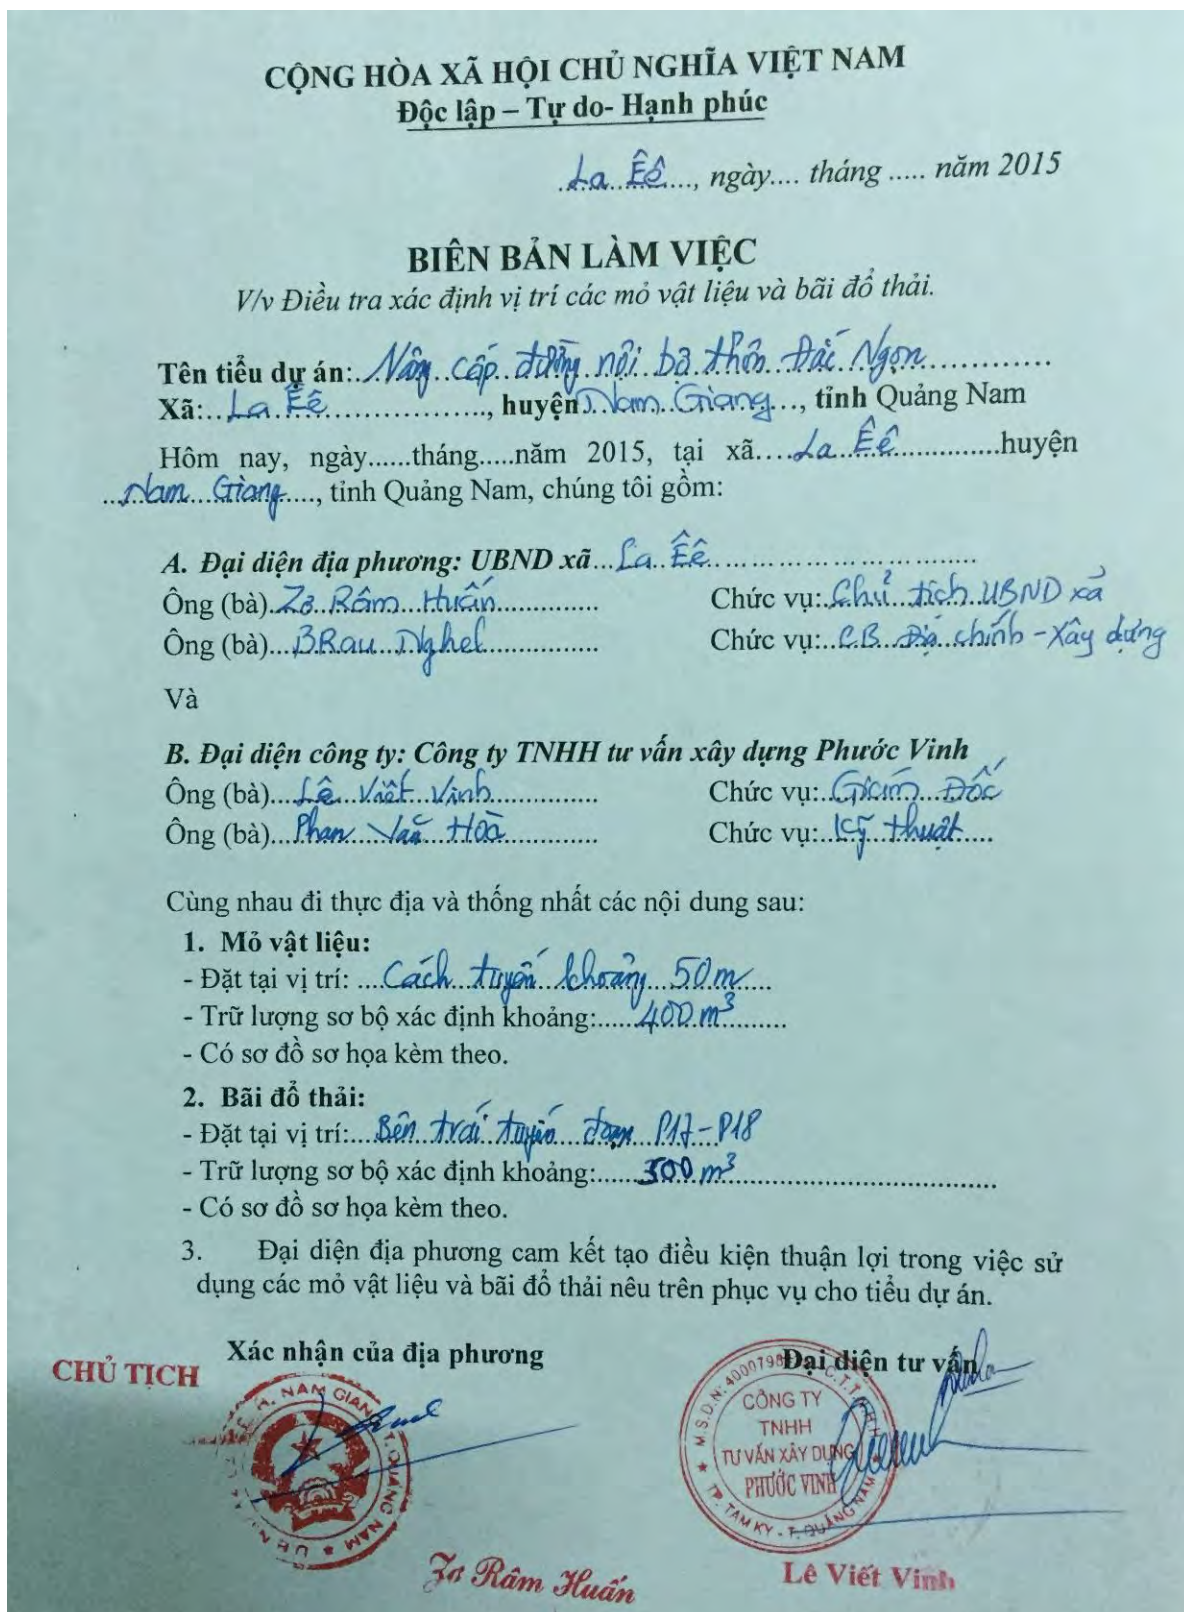 CỘNG HÒA XÃ HỘI CHỦ NGHĨA VIỆT NAM
Độc lập – Tự do- Hạnh phúc
La Êê, ngày.... tháng ..... năm 2015
BIÊN BẢN LÀM VIỆC
V/v Điều tra xác định vị trí các mỏ vật liệu và bãi đổ thải.
Tên tiểu dự án: Nâng cấp đường nội bộ thôn Đắc Ngọn
Xã: La Êê, huyện Nam Giang, tỉnh Quảng Nam
Hôm nay, ngày......tháng.....năm 2015, tại xã.... La Êê huyện
Nam Giang, tỉnh Quảng Nam, chúng tôi gồm:
A. Đại diện địa phương: UBND xã... La Êê
Ông (bà) Zơ Râm Huấn Chức vụ: Chủ tịch UBND xã
Ông (bà) BRau Nghel Chức vụ: C.B Địa chính - Xây dựng
Và
B. Đại diện công ty: Công ty TNHH tư vấn xây dựng Phước Vinh
Ông (bà) Lê Viết Vinh Chức vụ: Giám Đốc
Ông (bà) Phan Văn Hoà Chức vụ: Kỹ thuật
Cùng nhau đi thực địa và thống nhất các nội dung sau:
1. Mỏ vật liệu:
- Đặt tại vị trí: Cách tuyến khoảng 50m
- Trữ lượng sơ bộ xác định khoảng: 400 m³
- Có sơ đồ sơ họa kèm theo.
2. Bãi đổ thải:
- Đặt tại vị trí: Bên trái tuyến đoạn P17-P18
- Trữ lượng sơ bộ xác định khoảng: 300 m³
- Có sơ đồ sơ họa kèm theo.
3. Đại diện địa phương cam kết tạo điều kiện thuận lợi trong việc sử
dụng các mỏ vật liệu và bãi đổ thải nêu trên phục vụ cho tiểu dự án.
Xác nhận của địa phương Đại diện tư vấn
CHỦ TỊCH
H. NAM GIANG T. QUẢNG NAM
M.S.D.N: 4000798 C.T.T.N.H.H
CÔNG TY
TNHH
TƯ VẤN XÂY DỰNG
PHƯỚC VINH
TP. TAM KỲ - T. QUẢNG NAM
Zơ Râm Huấn Lê Viết Vinh